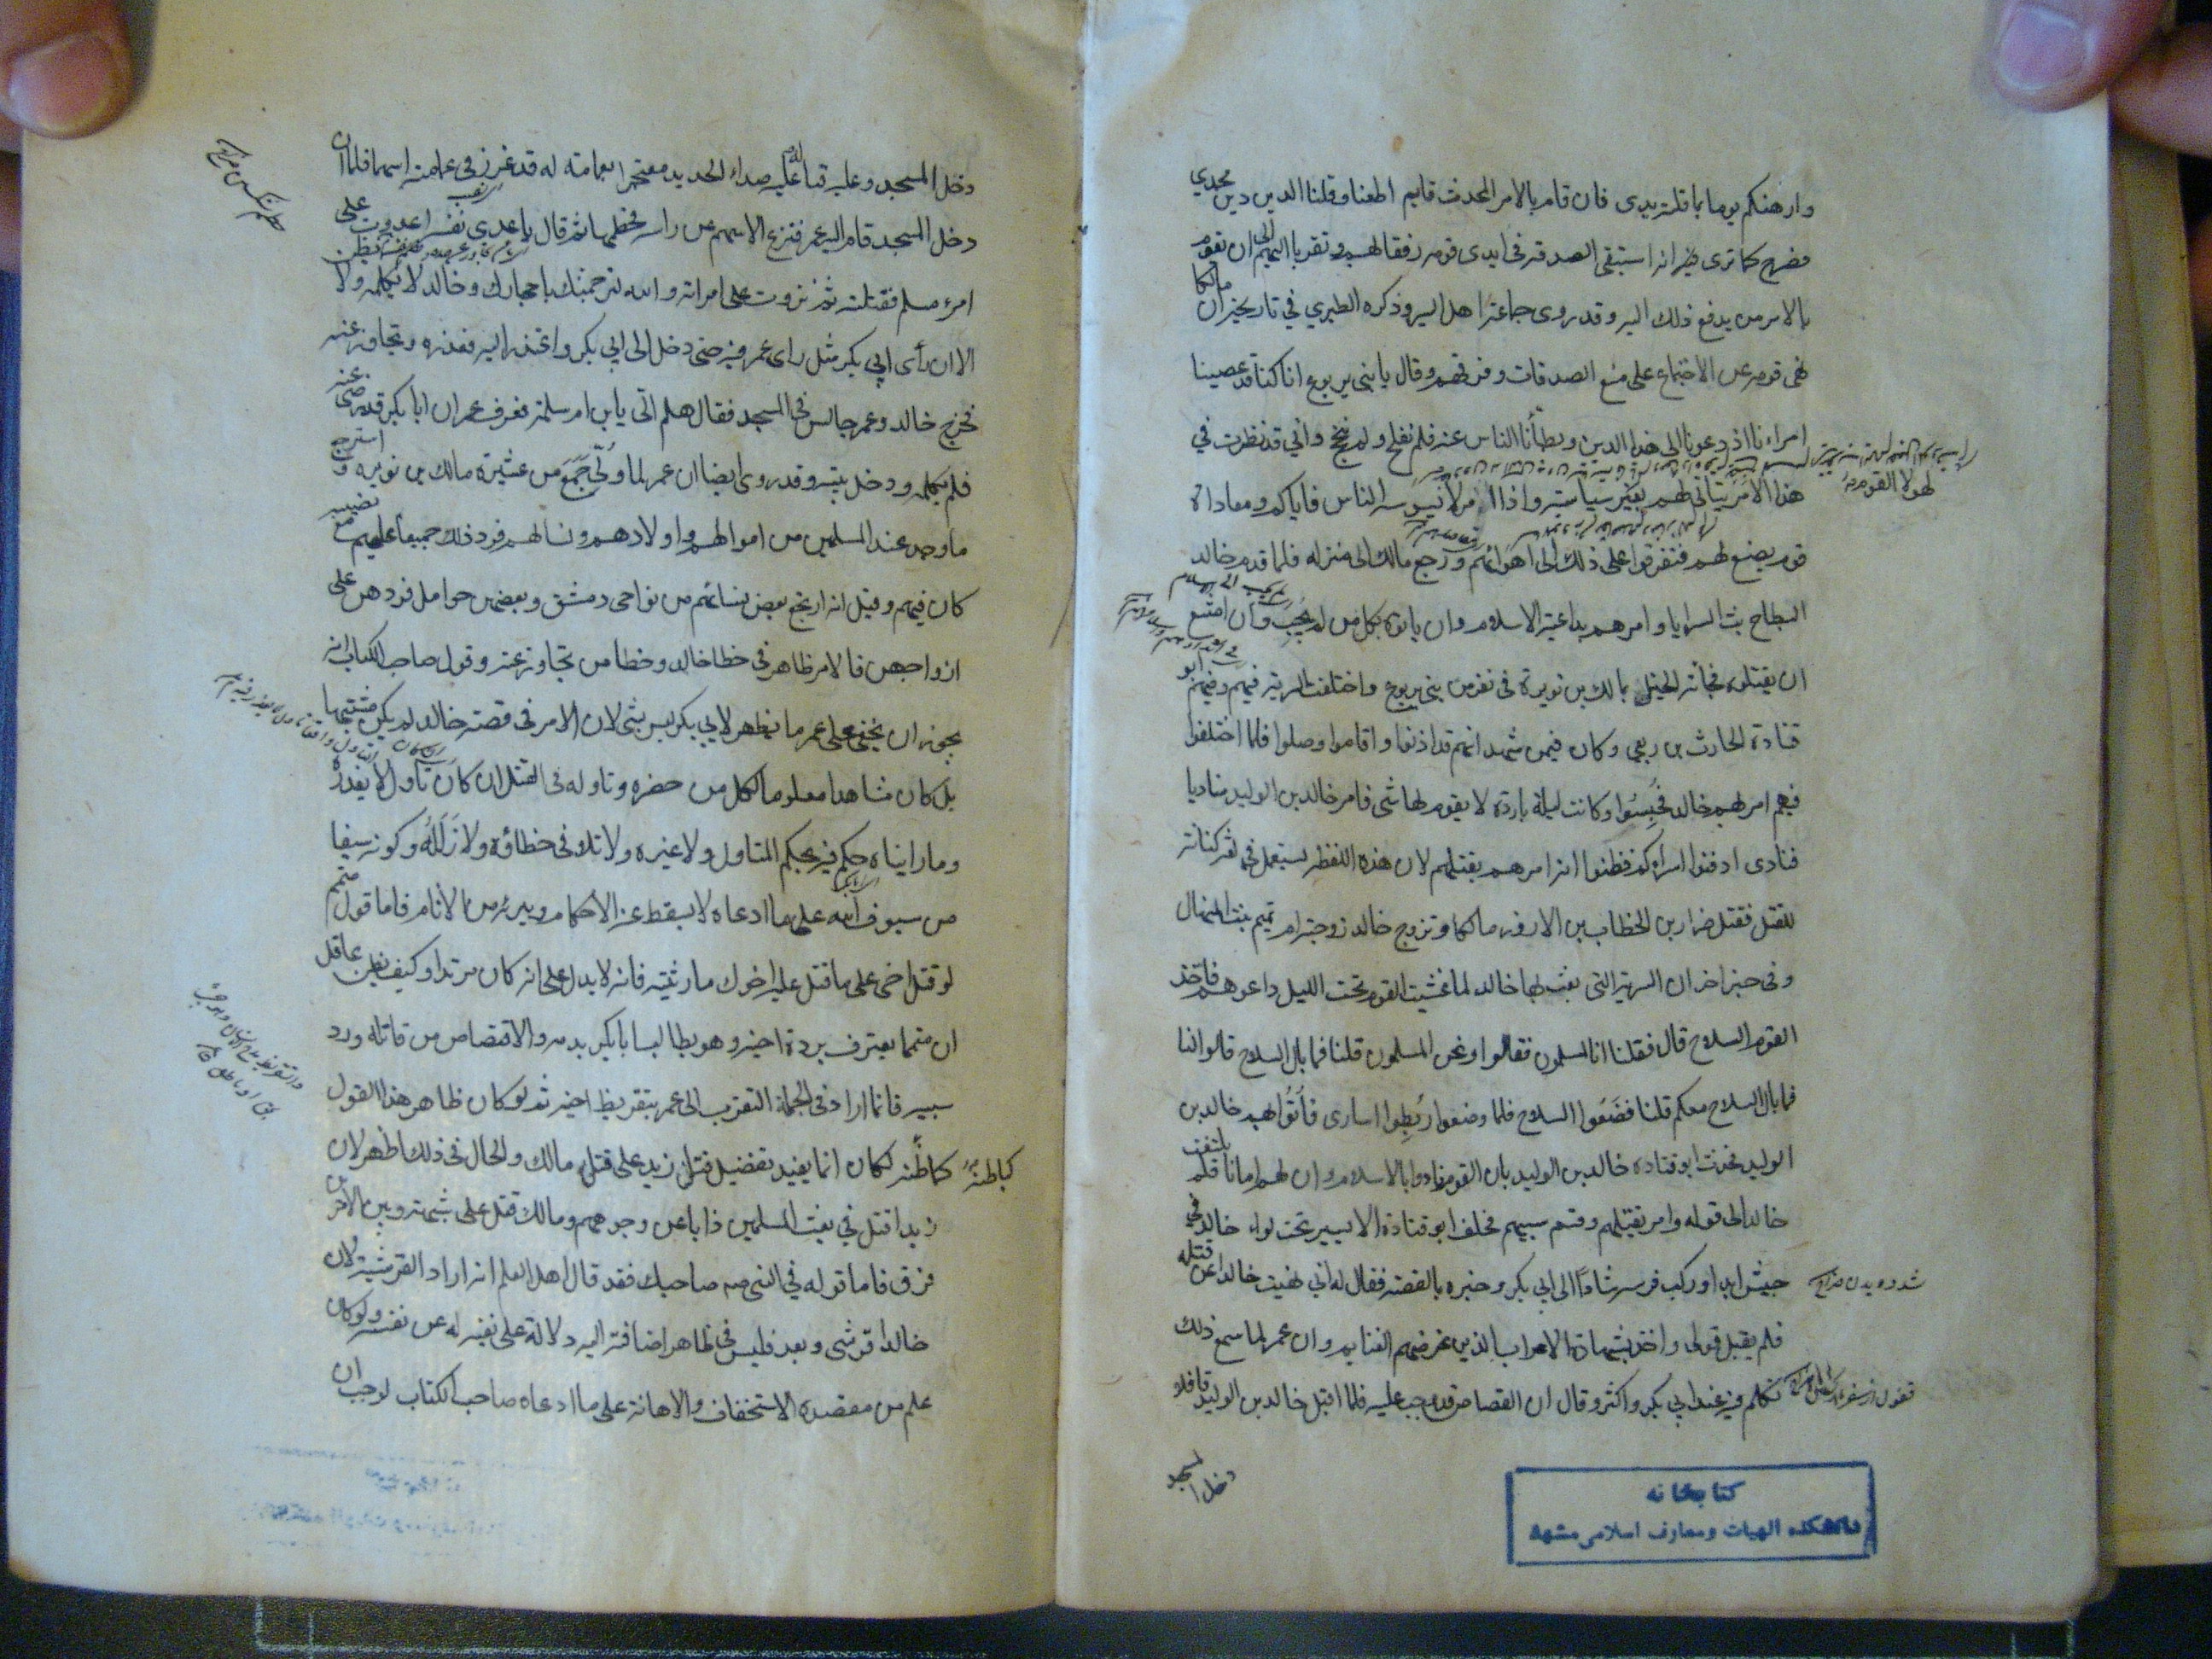 وارهنكم يوما بما قلته يدى فان قام بالامر المحدث قايم اطعنا وقلنا الدين دين محمدي
فصرح كما ترى فيه انه استبقى الصدقة فى ايدى قومه رفقا بهم وتقربا اليهم الى ان يقوم
بالامر من يدفع ذلك اليه وقد روى جماعة اهل السير وذكره الطبري في تاريخه ان مالكا
نهى قومه عن الاجتماع على منع الصدقات وفرقهم وقال يا بنى يربوع انا كنا قد عصينا
امراءنا اذ دعونا الى هذا الدين وبطأنا الناس عنه فلم نفلح ولم ننجح وانى قد نظرت في
هذا الامر يتاتى لهم بغير سياسة واذا امر لا يسوسه الناس فاياكم ومعاداة
لهولا القوم
قوم يصنع لهم فتفرقوا على ذلك الى اهوائهم ورجع مالك الى منزله فلما قدم خالد
البطاح بث السرايا وامرهم بداعية الاسلام وان ياتوه بكل من لم يجب وان امتنع
ان يقتلوه فجائته الخيل بمالك بن نويرة فى نفر من بنى يربوع واختلفت السرية فيهم وفيهم ابو
قتادة الحارث بن ربعي وكان فيمن شهد انهم قد اذنوا واقاموا وصلوا فلما اختلفوا
فيهم امر بهم خالد فحبسوا وكانت ليلة باردة لا يقوم لها شى فامر خالد بن الوليد مناديا
فنادى ادفئوا اسراءكم فظنوا انه امرهم بقتلهم لان هذه اللفظة يستعمل فى لغة كنانة
للقتل فقتل ضرار بن الخطاب بن الازور مالكا وتزوج خالد زوجته ام تميم بنت المنهال
وفى خبر اخر ان السرية التى بعث بها خالد لما غشيت القوم تحت الليل راعوهم فاخذ
القوم السلاح قال فقلنا انا المسلمون فقالوا ونحن المسلمون قلنا فما بال السلاح قالوا لنا
فما بال السلاح معكم قلنا فضعوا السلاح فلما وضعوا ربطوا اسارى فأتوا بهم خالد بن
الوليد فحدث ابو قتادة خالد بن الوليد بان القوم نادوا بالاسلام وان لهم امانا فلم يلتفت
خالد الى قوله وامر بقتلهم وقسم سبيهم فحلف ابو قتادة الا يسير تحت لواء خالد في
جيش ابدا وركب فرسه شاذا الى ابي بكر وخبره بالقصة فقال له اني نهيت خالدا عن قتله
فلم يقبل قولى واخذ بشهادة الاعراب الذين غرضهم الغنايم وان عمر لما سمع ذلك
تكلم فيه عند ابي بكر واكثر وقال ان القصاص قد وجب عليه فلما اقبل خالد بن الوليد قافلا
دخل المسجد
كتابخانه
دانشكده الهيات ومعارف اسلامى مشهد
دخل المسجد وعليه قباء له عليه صداء الحديد معتجرا بعمامة له قد غرز فى عمامته اسهما فلما ان
دخل المسجد قام اليه عمر فنزع الاسهم عن راسه فحطمها ثم قال يا عدى نفسه اعدوت على
امرء مسلم فقتلته ثم نزوت على امراته والله لنرجمنك باحجارك وخالد لا يكلمه ولا يظن
الا ان رأى ابي بكر مثل راى عمر فيه حتى دخل الى ابي بكر واعتذر اليه فعذره وتجاوز عنه
فخرج خالد وعمر جالس فى المسجد فقال هلم الى يا بن ام سلمة فعرف عمر ان ابا بكر قد رضى عنه
فلم يكلمه ودخل بيته وقد روى ايضا ان عمر لما ولى جمع من عشيرة مالك بن نويره واسترجع
ما وجد عند المسلمين من اموالهم واولادهم ونسائهم فرد ذلك جميعا عليهم مع نصيبه
كان فيهم وقيل انه ارتجع بعض نسائهم من نواحى دمشق وبعضهن حوامل فردهن على
ازواجهن فالامر ظاهر فى خطا خالد وخطا من تجاوز عنه وقول صاحب الكتاب انه
يجوز ان يخفى على عمر ما يظهر لابي بكر ليس بشى لان الامر فى قصة خالد لم يكن مشتبها
بل كان مشاهدا معلوما لكل من حضره وتاوله فى القتل ان كان تأول لا يعذره
وما راينا حكم فيه بحكم المتاول ولا غيره ولا تلافى خطاؤه ولا زلله وكونه سيفا
من سيوف الله على ما ادعاه لا يسقط عنه الاحكام ويبرئه من الاثام فاما قول متمم
لو قتل اخى على ما قتل عليه اخوك ما رثيته فانه لا يدل على انه كان مرتدا وكيف يظن عاقل
ان متمما يعترف بردة اخيه وهو يطالب ابا بكر بدمه والاقتصاص من قاتله ورد
سبيه فانما اراد فى الجملة التقرب الى عمر بتقريظ اخيه ثم لو كان ظاهر هذا القول
كباطنه كباطنه لكان انما يفيد تفضيل قتل زيد على قتل مالك والحال فى ذلك اظهر لان
زيدا قتل في بعث المسلمين ذابا عن وجوههم ومالك قتل على شبهة وبين الامرين
فرق فاما قوله في النبى صلى صاحبك فقد قال اهل العلم انه اراد القرشية لان
خالدا قرشى وبعد فليس فى ظاهر اضافته اليه دلالة على نفيه له عن نفسه ولو كان
علم من مقصده الاستخفاف والاهانة على ما ادعاه صاحب الكتاب لوجب ان